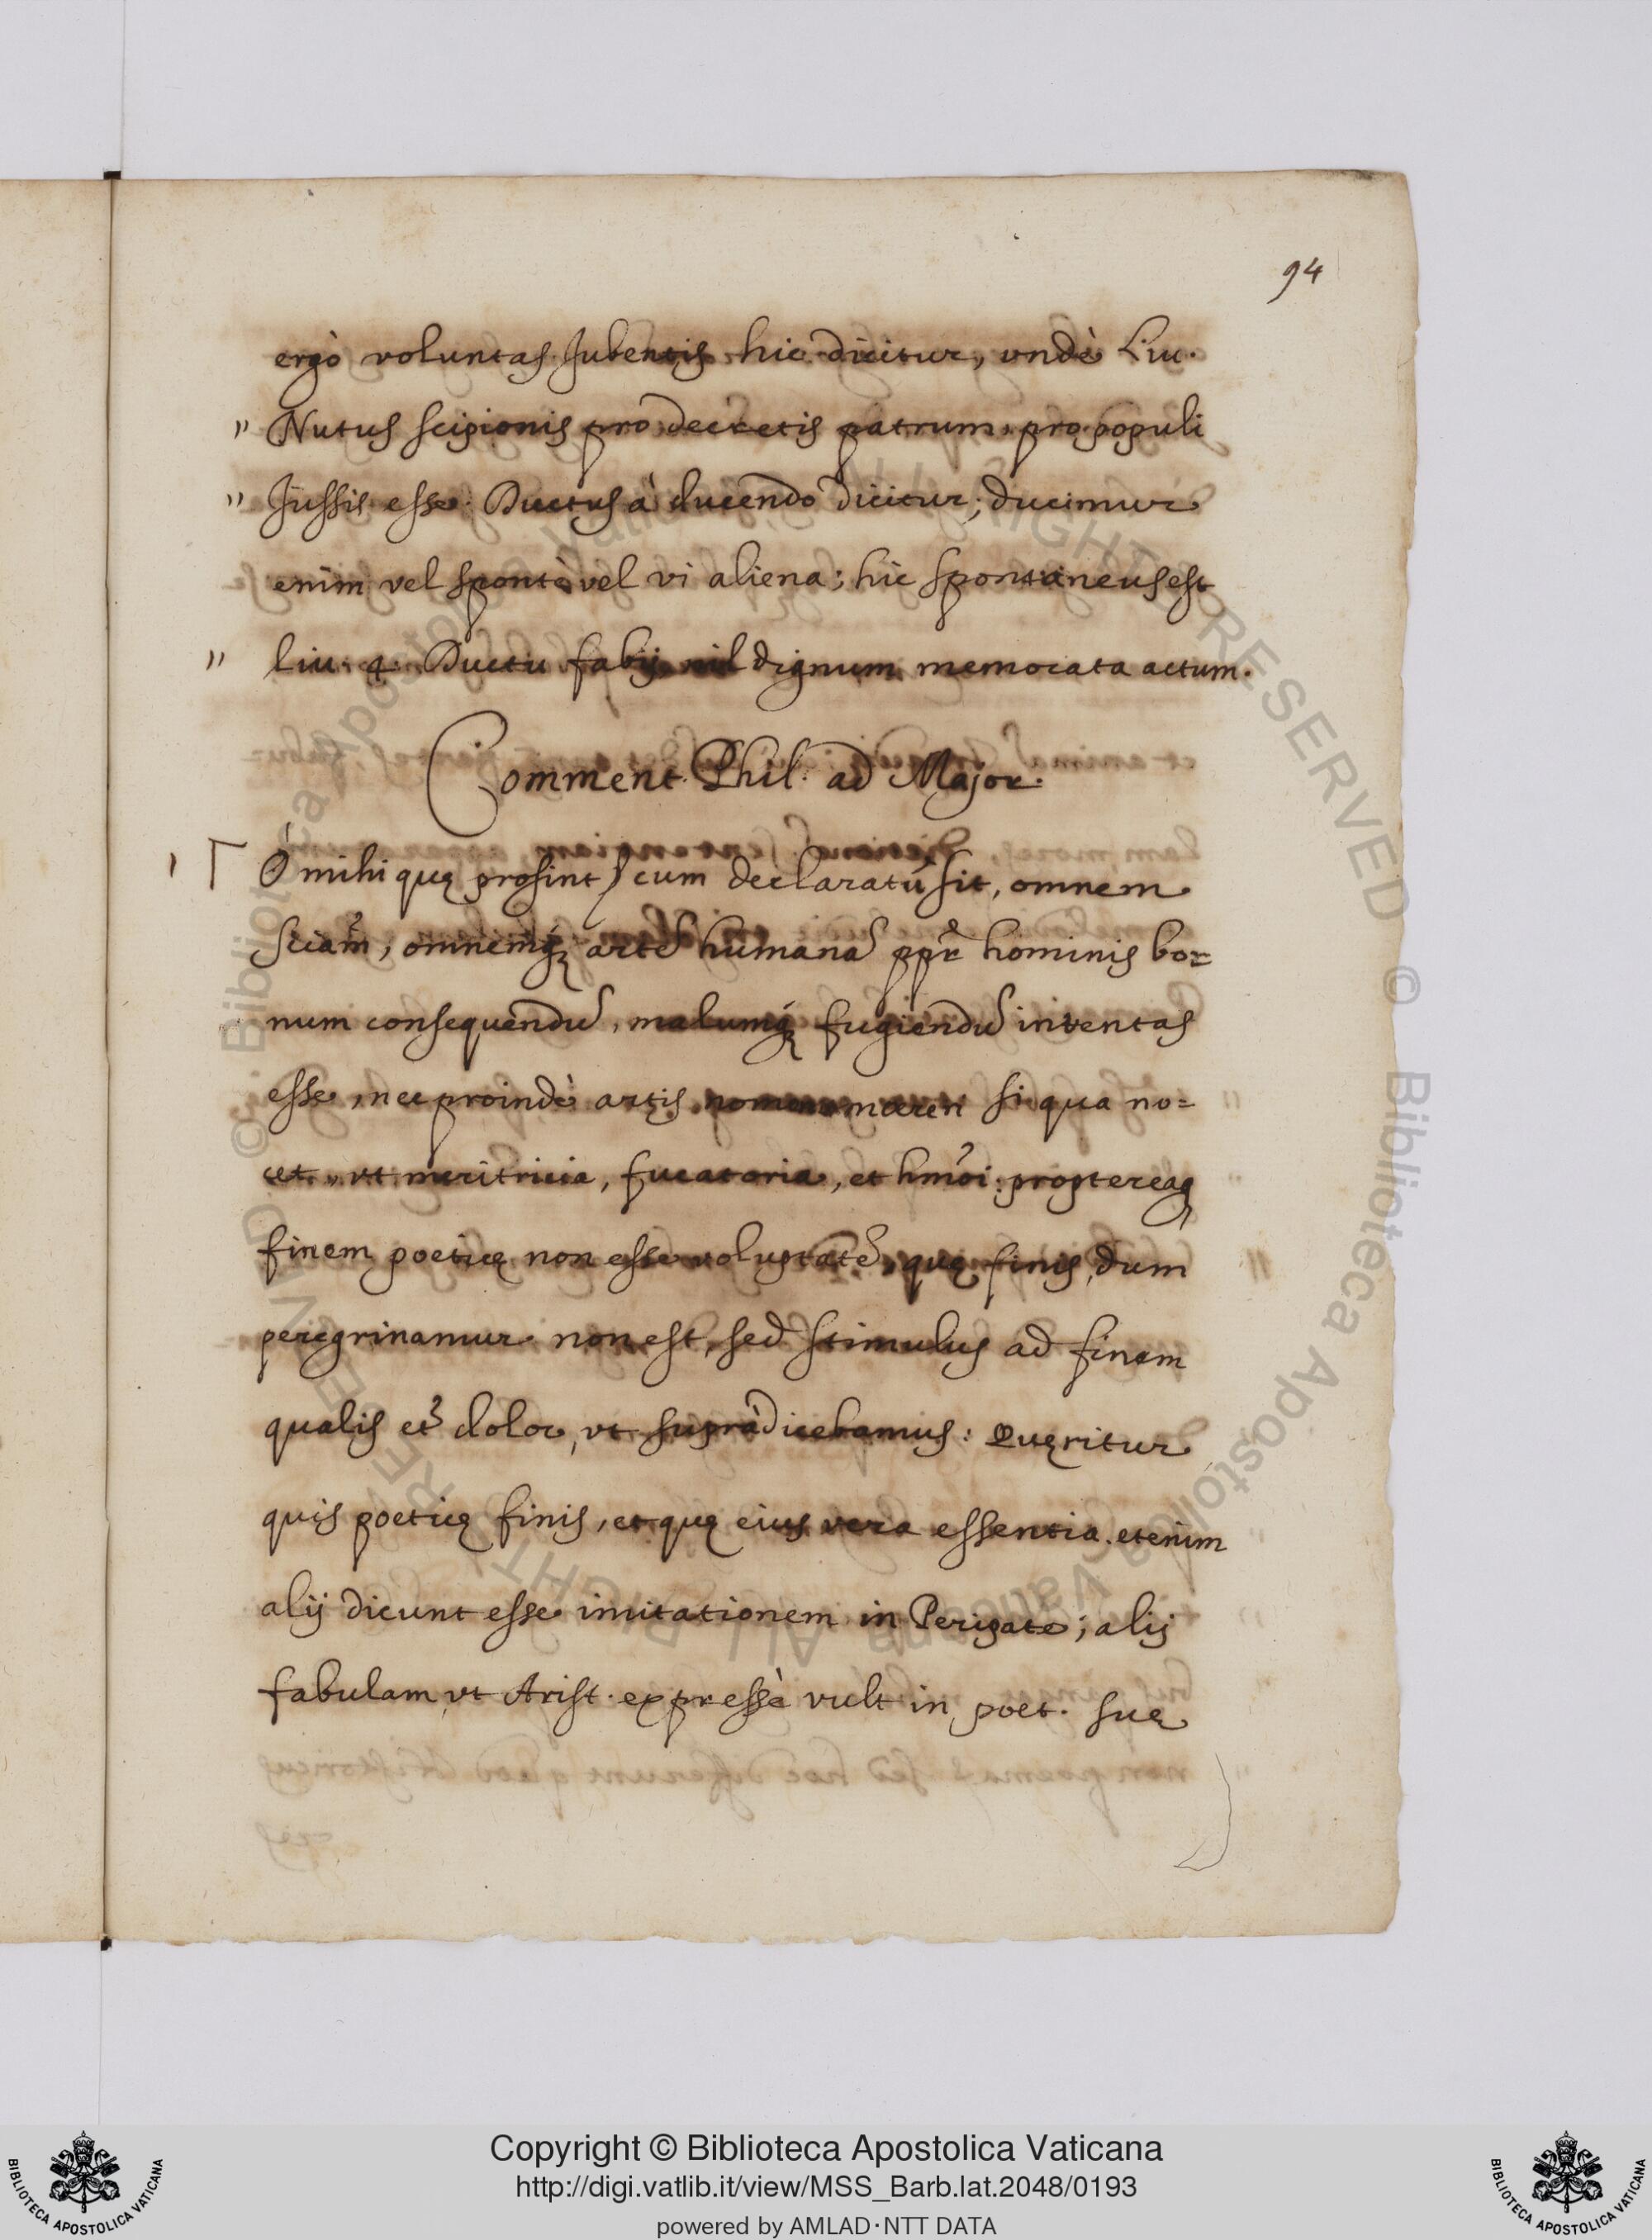 94
ergò voluntas Jubentis hic dicitur, vndè Liu.
" Nutus scipionis pro decretis patrum, pro populi
" Jussis esse. Ductus à ducendo dicitur; ducimur
enim vel spontè vel vi aliena; hic spontaneus est
" liu. 4. Ductu fabij nil dignum memorata actum.
Comment. Phil. ad Major.
Ó mihi quę prosint) cum declaratũ sit, omnem
sciam̃, omnemq́ꝫ artẽ humanã ppr̃ hominis bo=
num consequendũ, malumq́ꝫ fugiendũ inventas
esse, nec proindè artis nomen mereri si qua no=
cet, vt meritricia, fucatoria, et hmõi: proptereaq
finem poeticę non esse voluptatẽ, quę finis, dum
peregrinamur non est, sed stimulus ad finem
qualis et̃ dolor, vt suprà dicebamus: Quęritur
quis poeticę finis, et quę eius vera essentia. etenim
alij dicunt esse imitationem in Peripate; alij
fabulam, vt Arist. expressè vult in poet. suę
Copyright © Biblioteca Apostolica Vaticana
http://digi.vatlib.it/view/MSS_Barb.lat.2048/0193
powered by AMLAD·NTT DATA
BIBLIOTECA APOSTOLICA VATICANA
BIBLIOTECA APOSTOLICA VATICANA